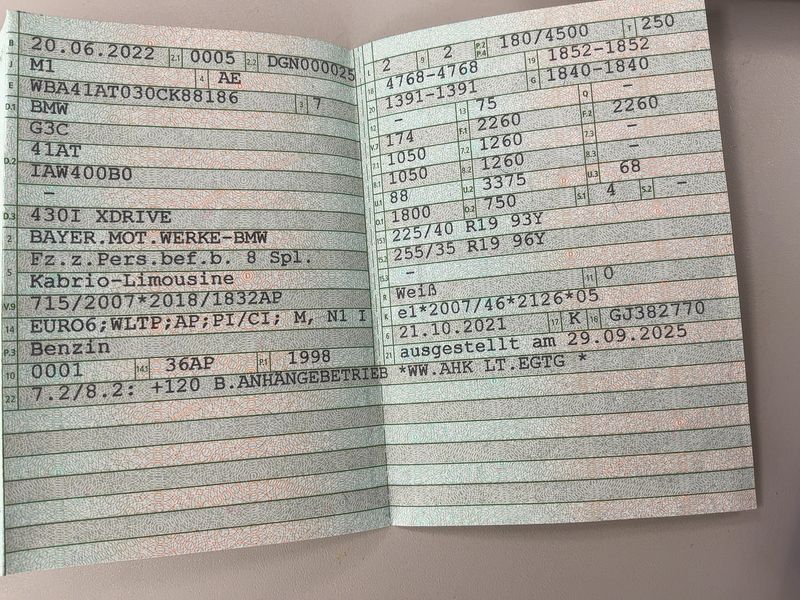 B 20.06.2022 2.1 0005 2.2 DGN000025
J M1 4 AE
E WBA41AT030CK88186 3 7
D.1 BMW
G3C
D.2 41AT
IAW400B0
–
D.3 430I XDRIVE
2 BAYER.MOT.WERKE-BMW
Fz.z.Pers.bef.b. 8 Spl.
5 Kabrio-Limousine
V.9 715/2007*2018/1832AP
14 EURO6;WLTP;AP;PI/CI; M, N1 I
P.3 Benzin
10 0001 14.1 36AP P.1 1998
22 7.2/8.2: +120 B.ANHÄNGEBETRIEB *WW.AHK LT.EGTG *
L 2 9 2 P.2 P.4 180/4500 T 250
18 4768-4768 19 1852-1852
20 1391-1391 G 1840-1840
12 – 13 75 Q –
V.7 174 F.1 2260 F.2 2260
7.1 1050 7.2 1260 7.3 –
8.1 1050 8.2 1260 8.3 –
U.1 88 U.2 3375 U.3 68
O.1 1800 O.2 750 S.1 4 S.2 –
15.1 225/40 R19 93Y
15.2 255/35 R19 96Y
15.3 –
R Weiß 11 0
K e1*2007/46*2126*05
6 21.10.2021 17 K 16 GJ382770
21 ausgestellt am 29.09.2025